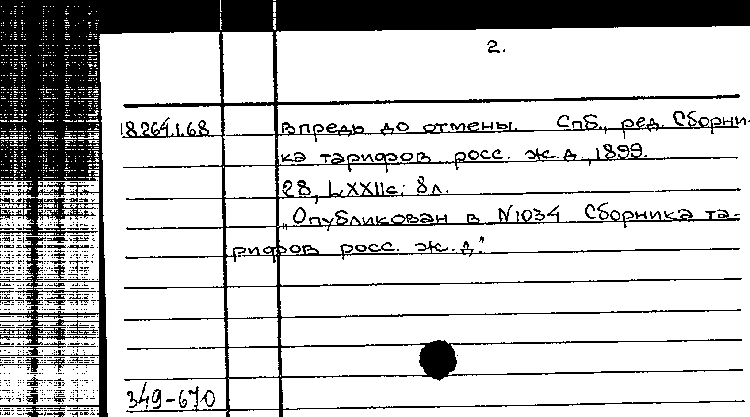 2.
18264.1.68 впредь до отмены. Спб., ред. Сборни-
ка тарифов росс. ж.д., 1899.
28, LXXIIс; 8л.
"Опубликован в N1034 Сборника та-
рифов росс. ж.д."
349-670